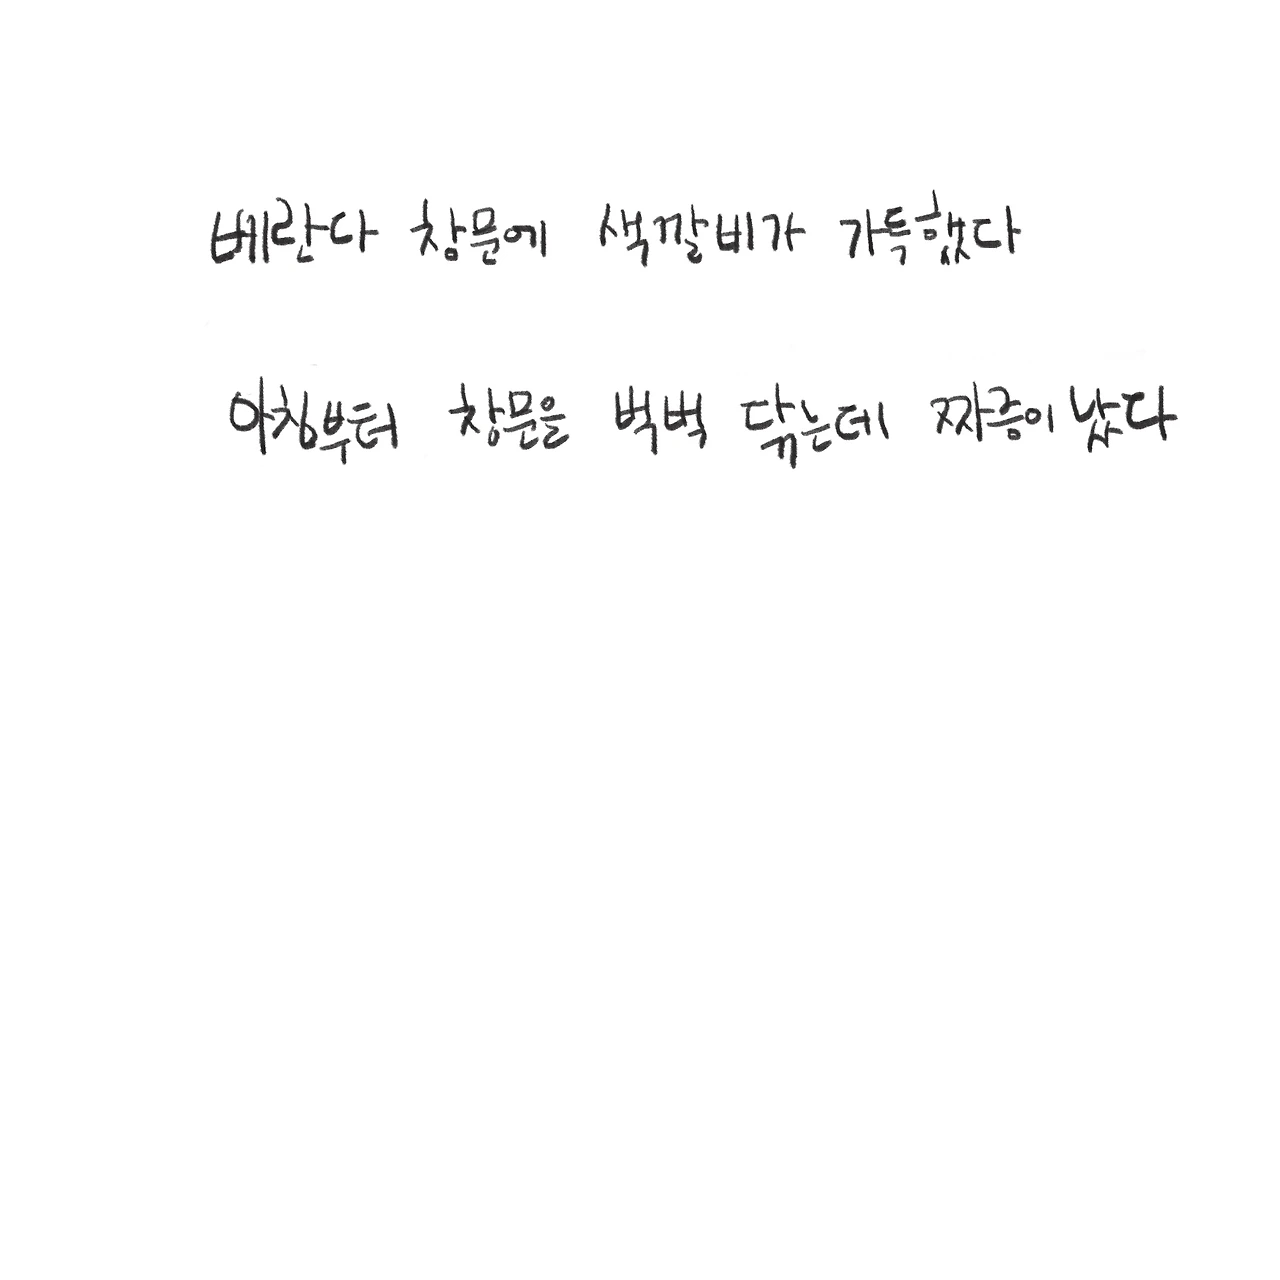 베란다 창문에 색깔비가 가득했다
아침부터 창문을 벅벅 닦는데 짜증이 났다